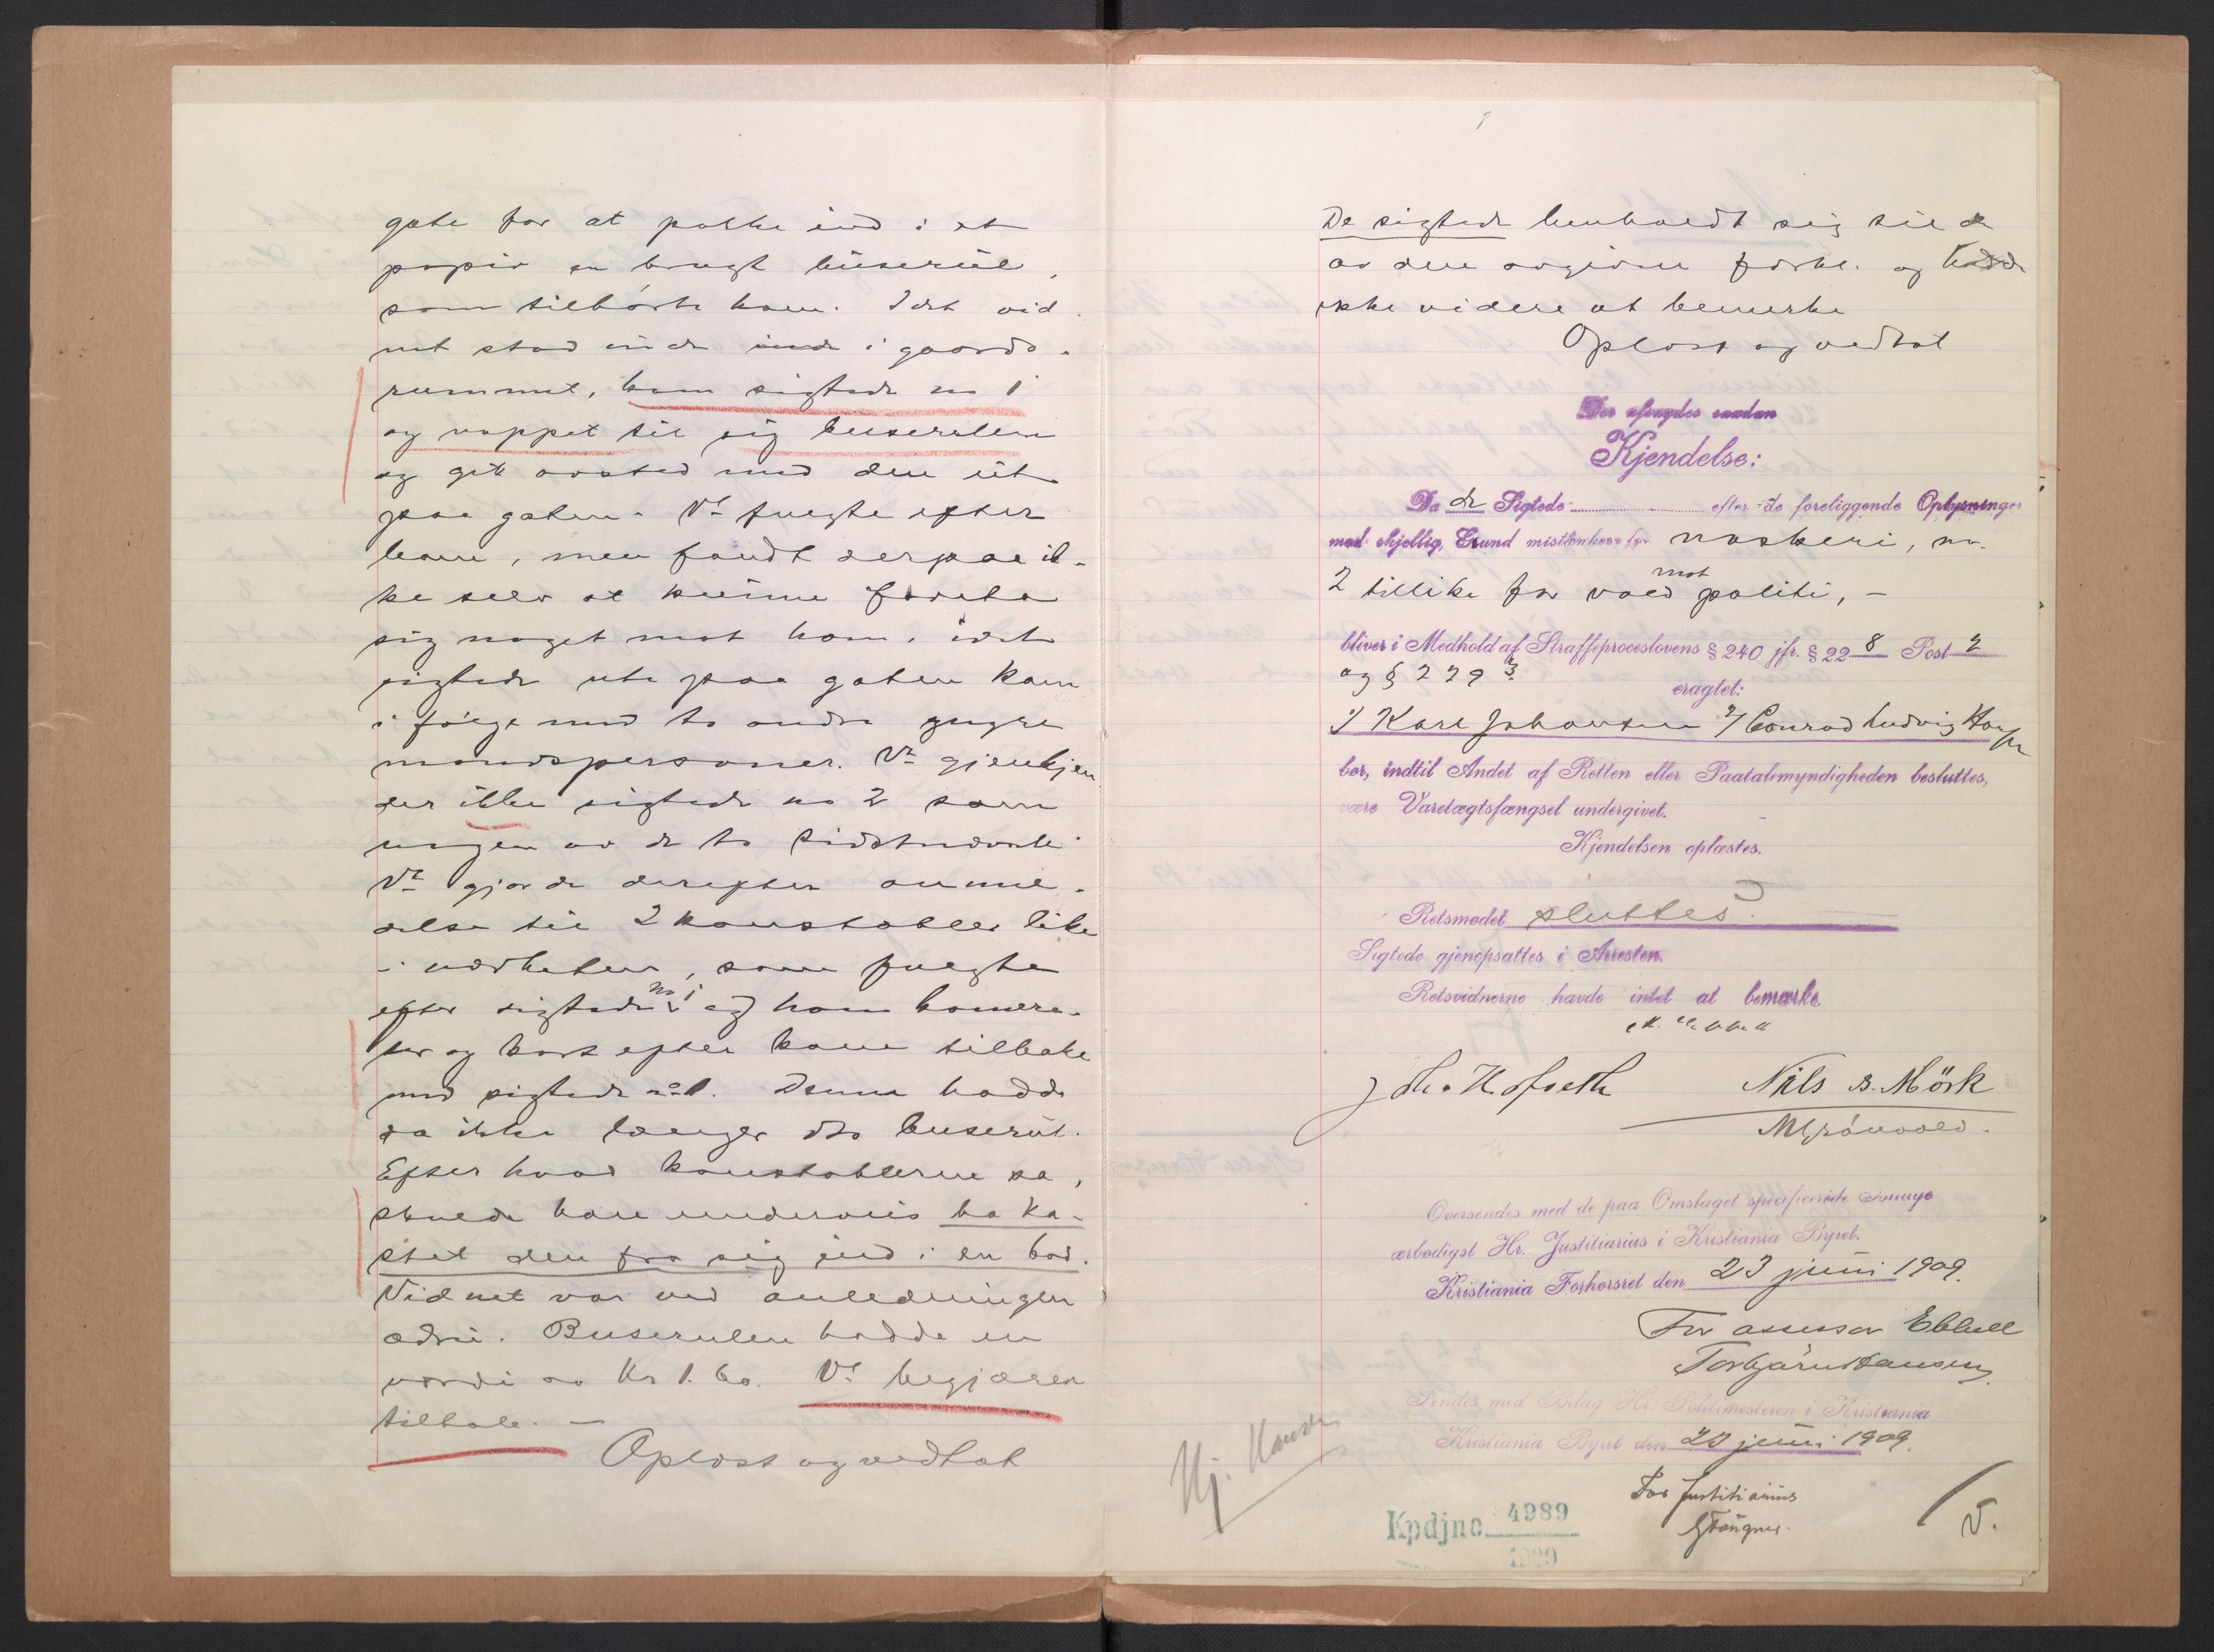 gate for at pakke ind i et
papir en brugt buserul,
som tilhørte ham. Idet vid
net stod inde inde i gaards-
rummet, kom sigtede no 1
og nappet til sig buserulen
og gik avsted med den ut
paa gaten. Vt fulgte efter
ham, men fandt derpaa ik-
ke selv at kunne foreta
sig noget mot ham, idet
sigtede ute paa gaten kom
i følge med to andre yngre
mandspersoner. Vt gjenkjen
der ikke sigtede no 2 som
nogen av de to sidstnævnte
Vt gjorde derefter anmel-
delse til 2 konstabler like
i nærheten, som fulgte
efter sigtede no 1 og hans kamera-
ter og kort efter kom tilbake
med sigtede no 1. Denne hadde
da ikke længer sto buserul.
Efter hvad konstablerne sa,
skulde han underveis ha ka-
stet den fra sig ind i en bod.
Vidnet var ved anledningen
ædru. Buserulen hadde en
værdi av Kr 1.60. Vt begjærer
tiltale. —
Oplæst og vedtat
De sigtede henholdt sig til de
av dem avgivne forkl. og hadde
ikke videre at bemerke
Oplæst og vedtat
Der afsagdes saadan
Kjendelse:
Da de Sigtede efter de foreliggende Oplysninger
med skjellig Grund mistænkes for naskeri, no.
2 tillike for vold mot politi, —
bliver i Medhold af Straffeproceslovens § 240 jfr. § 228 Post 2
og § 229 3
eragtet:
1/ Karl Johansen 2/ Conrad Ludvig Hansen
bør, indtil Andet af Retten eller Paatalemyndigheden besluttes,
være Varetægtsfængsel undergivet.
Kjendelsen oplæstes.
Retsmødet sluttes.
Sigtede gjenopsattes i Arresten.
Retsvidnerne havde intet at bemærke
Joh. K. Hofseth Nils B. Mörk
M Grönvold.
Oversendes med de paa Omslaget specificerede
ærbødigst Hr. Justitiarius i Kristiania Byret.
Kristiania Forhørsret den 23 juni 1909.
For assessor Ebbell
Torbjørn Hansen
Sendes med Bilag Hr. Politimesteren i Kristiania
Kristiania Byret den 23 juni 1909.
Hj. Hansen
For Justitiarius
Kpdjno 4989
1909